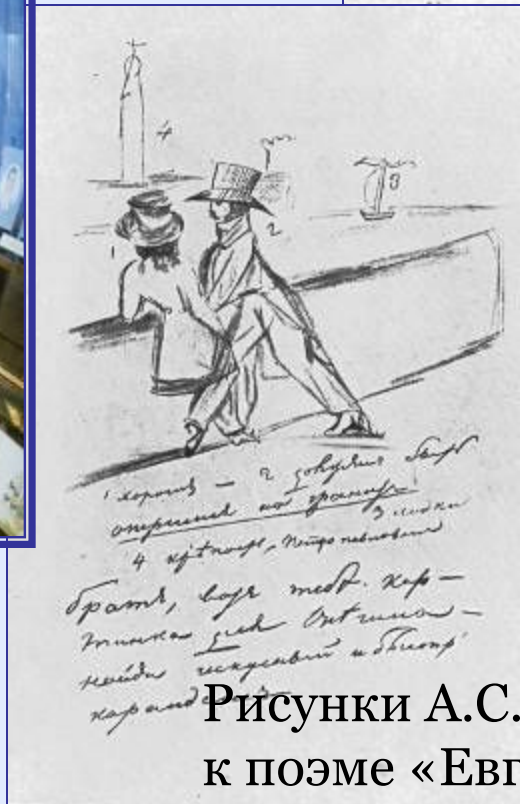 4
3
2
1
1 хорошъ — 2 долженъ быть
опершися на гранитъ
3 лодка
4 крѣпость Петропавловская
братъ, вотъ тебѣ кар—
тинка для Онѣгина —
найди искусный и быстр
карандашъ
Рисунки А.С.
к поэме «Евг